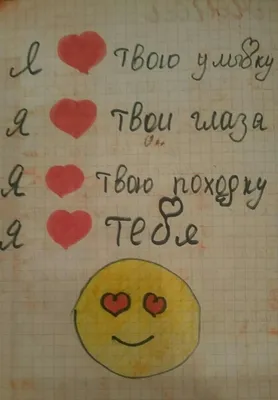 Я твою улыбку
я твои глаза
Я твою походку
я тебя